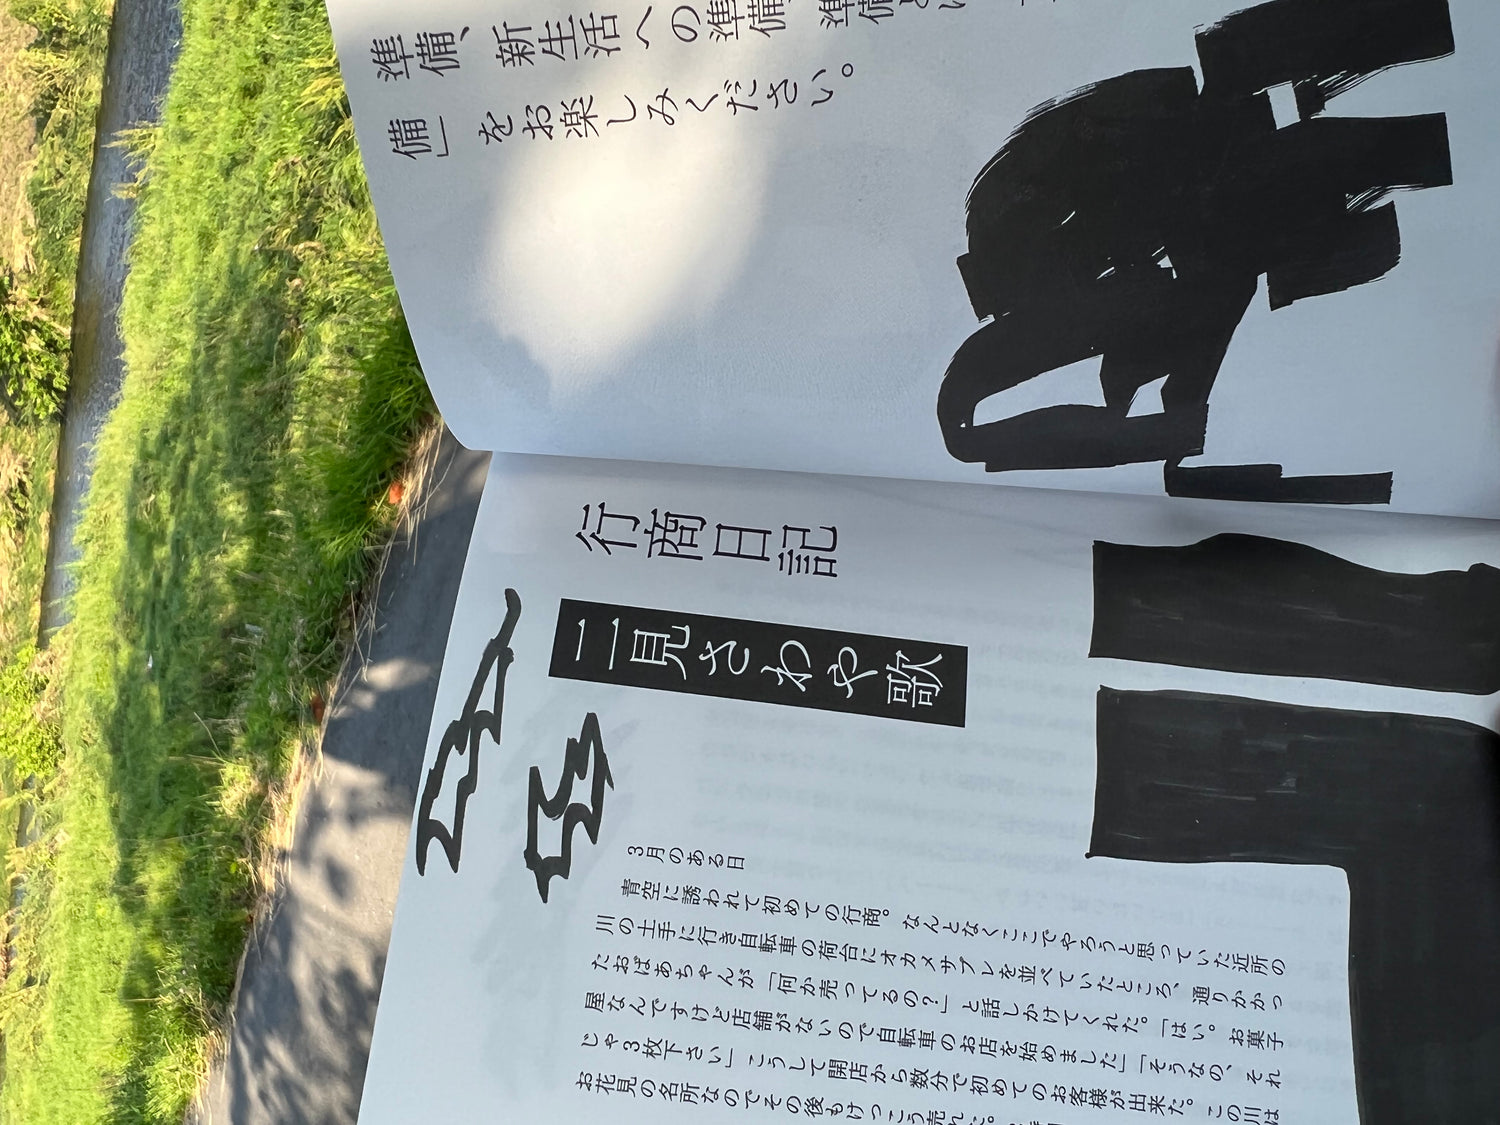 準備、新生活への準備
備」をお楽しみください。
行商日記
二見さわや歌
3月のある日
青空に誘われて初めての行商。なんとなくここでやろうと思っていた近所の
川の土手に行き自転車の荷台にオカメサブレを並べていたところ、通りかかっ
たおばあちゃんが「何か売ってるの?」と話しかけてくれた。「はい。お菓子
屋なんですけど店舗がないので自転車のお店を始めました」「そうなの、それ
じゃ3枚下さい」こうして開店から数分で初めてのお客様が出来た。この川は
お花見の名所なのでその後もけっこう売れた。